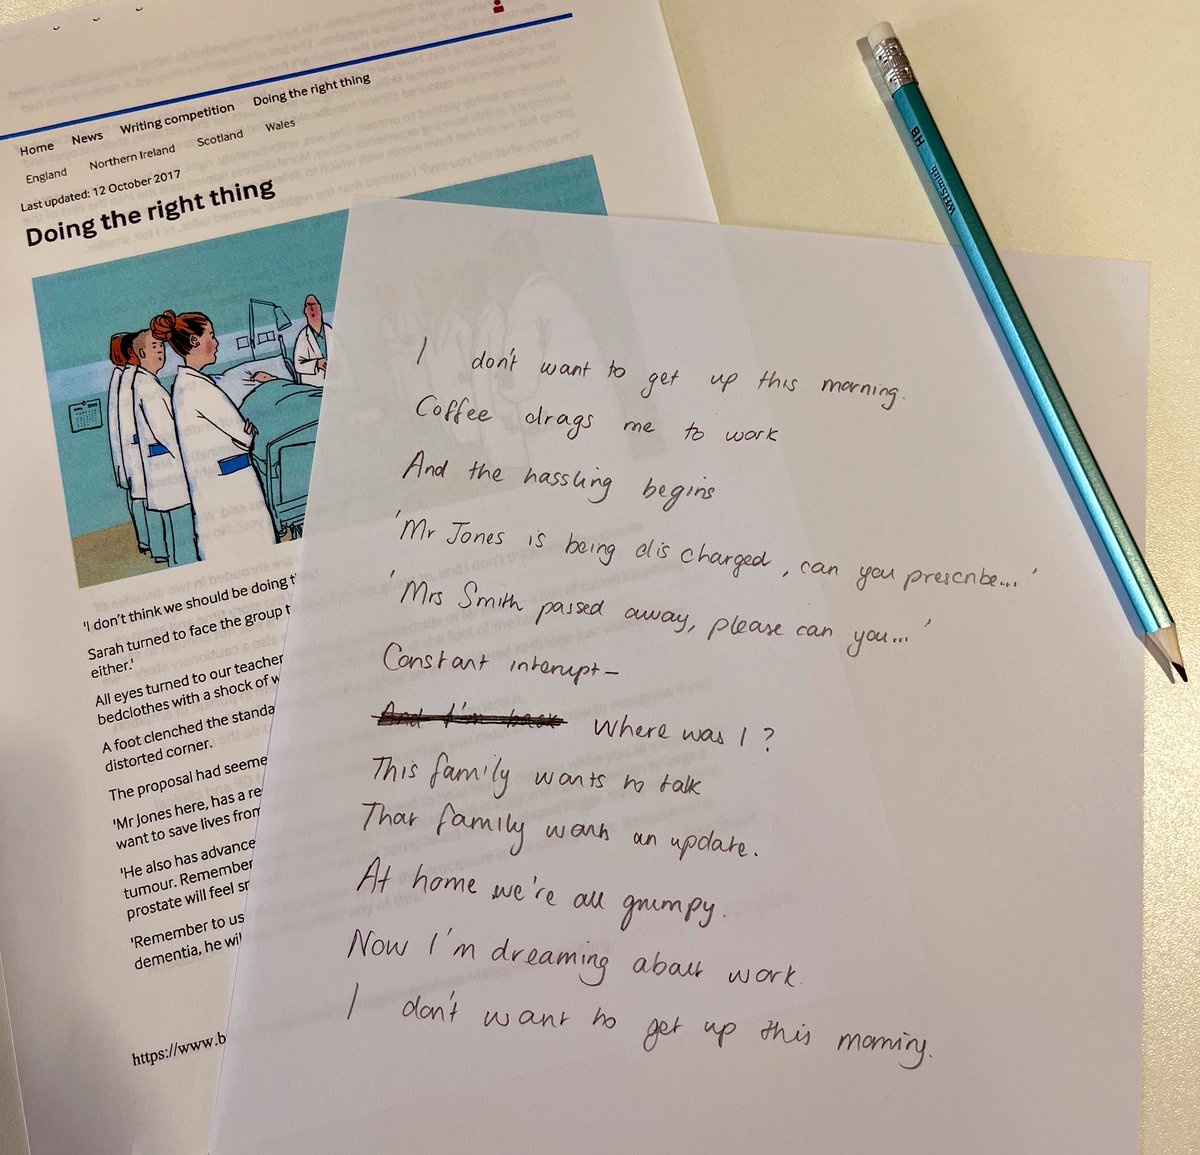 Home News Writing competition Doing the right thing
England Northern Ireland Scotland Wales
Last updated: 12 October 2017
Doing the right thing
'I don't think we should be doing
Sarah turned to face the group
either.'
All eyes turned to our teacher
bedclothes with a shock of
A foot clenched the
distorted corner.
The proposal had
'Mr Jones here, has a
want to save lives from
'He also has
tumour. Remember
prostate will feel
'Remember to
dementia, he
https://www.b
I don't want to get up this morning.
Coffee drags me to work
And the hassling begins
'Mr Jones is being discharged, can you prescribe...'
'Mrs Smith passed away, please can you...'
Constant interrupt-
And I'm back Where was I?
This family wants to talk
That family wants an update.
At home we're all grumpy.
Now I'm dreaming about work.
I don't want to get up this morning.
HB
WHSmith